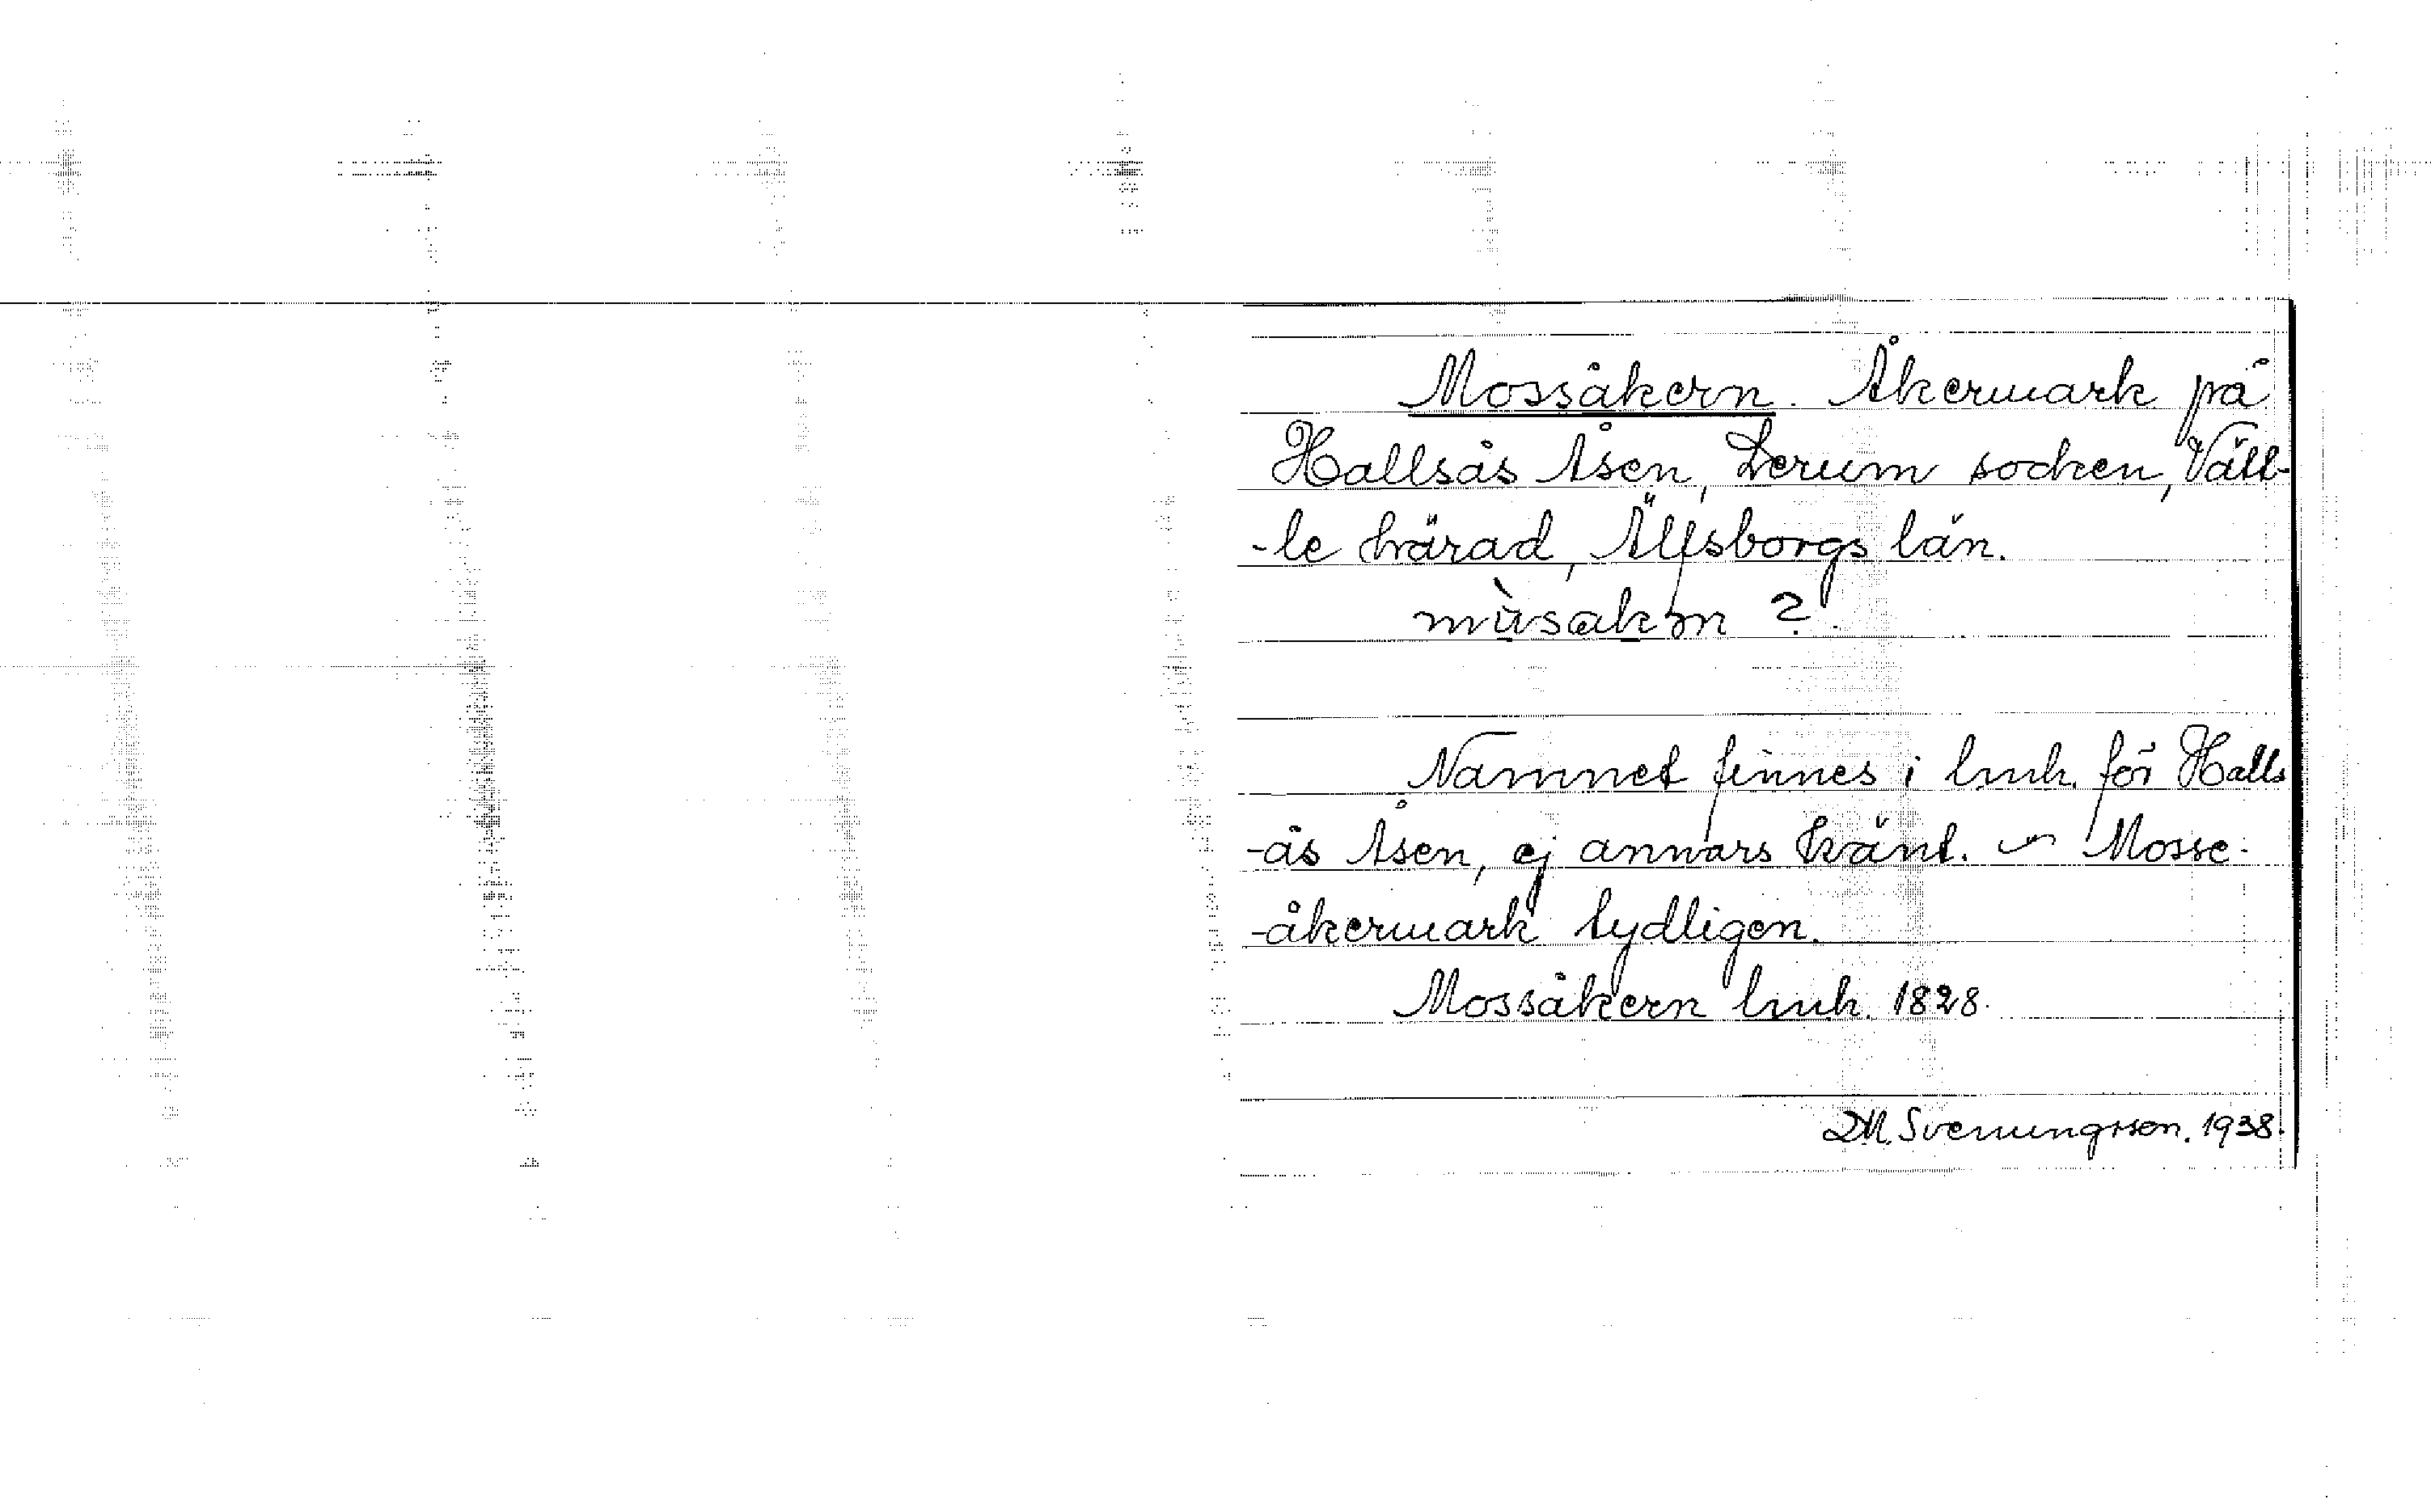 Mossåkern. Åkermark på
Hallsås Åsen, Lerum socken, Vätt-
-le härad, Älfsborgs län.
mùsakɷn ?
Namnet finnes i lmh. för Halls
-ås Åsen, ej annars känt. ~ Mosse-
-åkermark tydligen.
Mossåkern lmh. 1828.
DM. Svenungsson. 1938.